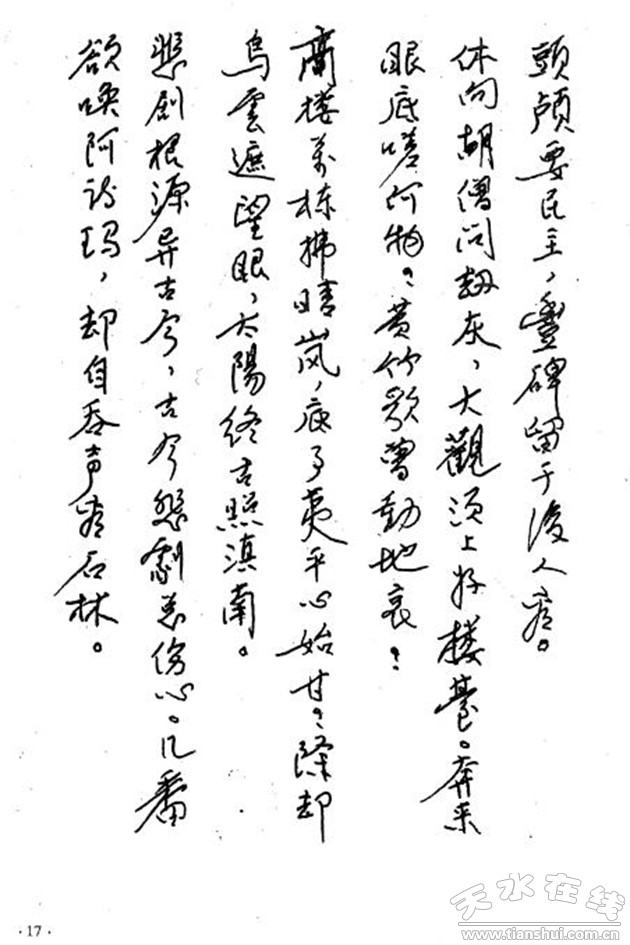 頭顱要民主，豐碑留于後人看。
休向胡僧问劫灰，大觀须上好楼臺。奔来
眼底嗟何物？黄竹歌曾動地哀？
高楼万栋拂晴岚，底事夷平心始甘？除却
乌雲遮望眼，太陽终古照滇南。
悲剧根源异古今，古今悲劇总伤心。几番
欲唤阿诗玛，却自吞声看石林。
·17·
天水在线
www.tianshui.com.cn